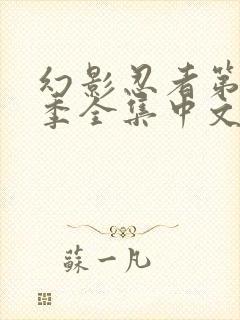 幻影忍者第
季全集中文
蘇一凡